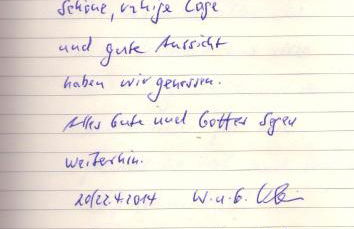 Schöne, ruhige Lage
und gute Aussicht
haben wir genossen.
Alles Gute und Gottes Segen
weiterhin.
20/22.4.2014 W. u. G.